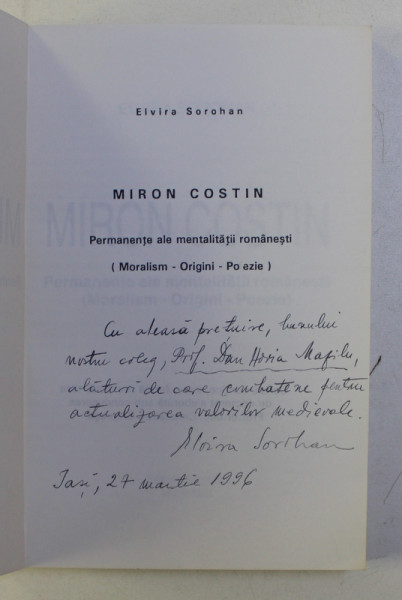 Elvira Sorohan
MIRON COSTIN
Permanențe ale mentalității românești
( Moralism - Origini - Poezie )
Cu aleasă prețuire, bunului
nostru coleg, Prof. Dan Horia Mazilu,
alături de care combatem pentru
actualizarea valorilor medievale.
Elvira Sorohan
Iași, 27 martie 1996